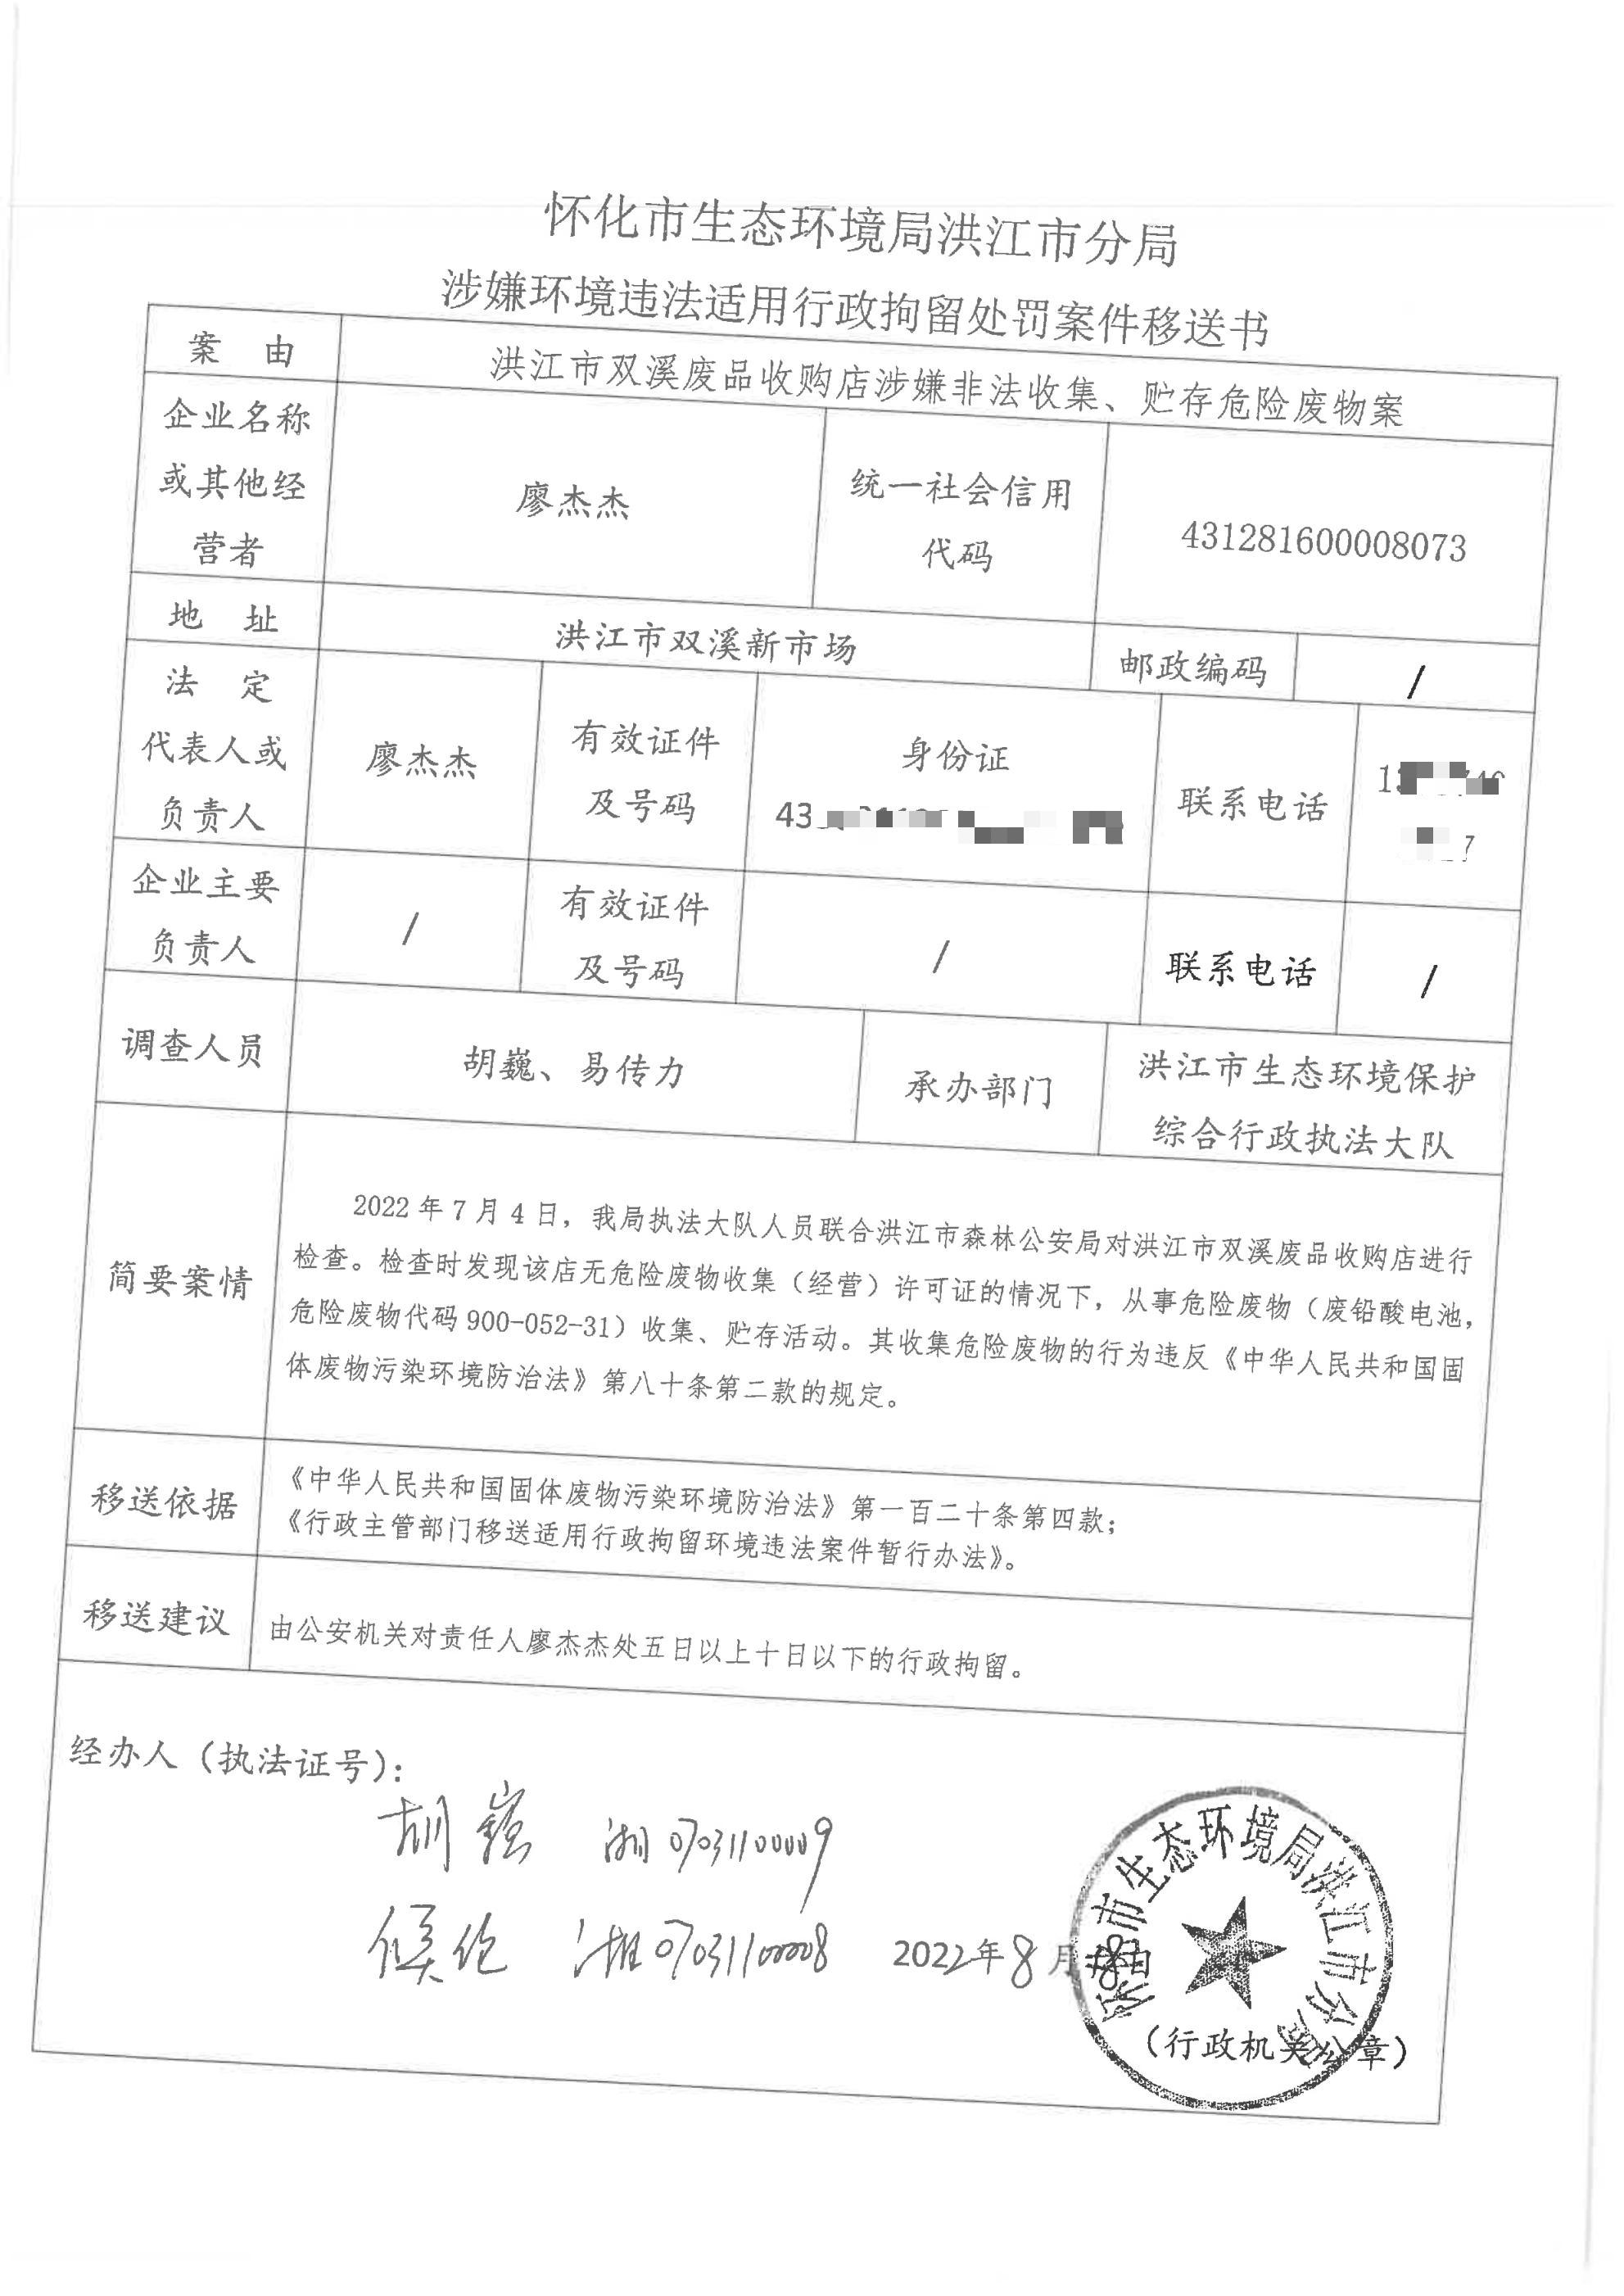 怀化市生态环境局洪江市分局
涉嫌环境违法适用行政拘留处罚案件移送书
案 由
洪江市双溪废品收购店涉嫌非法收集、贮存危险废物案
企业名称
或其他经
营者
廖杰杰
统一社会信用
代码
431281600008073
地 址
洪江市双溪新市场
邮政编码
/
法 定
代表人或
负责人
廖杰杰
有效证件
及号码
身份证
43
联系电话
1
7
企业主要
负责人
/
有效证件
及号码
/
联系电话
/
调查人员
胡巍、易传力
承办部门
洪江市生态环境保护
综合行政执法大队
简要案情
2022 年 7 月 4 日，我局执法大队人员联合洪江市森林公安局对洪江市双溪废品收购店进行
检查。检查时发现该店无危险废物收集（经营）许可证的情况下，从事危险废物（废铅酸电池，
危险废物代码 900-052-31）收集、贮存活动。其收集危险废物的行为违反《中华人民共和国固
体废物污染环境防治法》第八十条第二款的规定。
移送依据
《中华人民共和国固体废物污染环境防治法》第一百二十条第四款；
《行政主管部门移送适用行政拘留环境违法案件暂行办法》。
移送建议
由公安机关对责任人廖杰杰处五日以上十日以下的行政拘留。
经办人（执法证号）：
胡巍 湘07031100009
侯伦 湘07031100008 2022年8月8日
怀化市生态环境局洪江市分局
（行政机关公章）